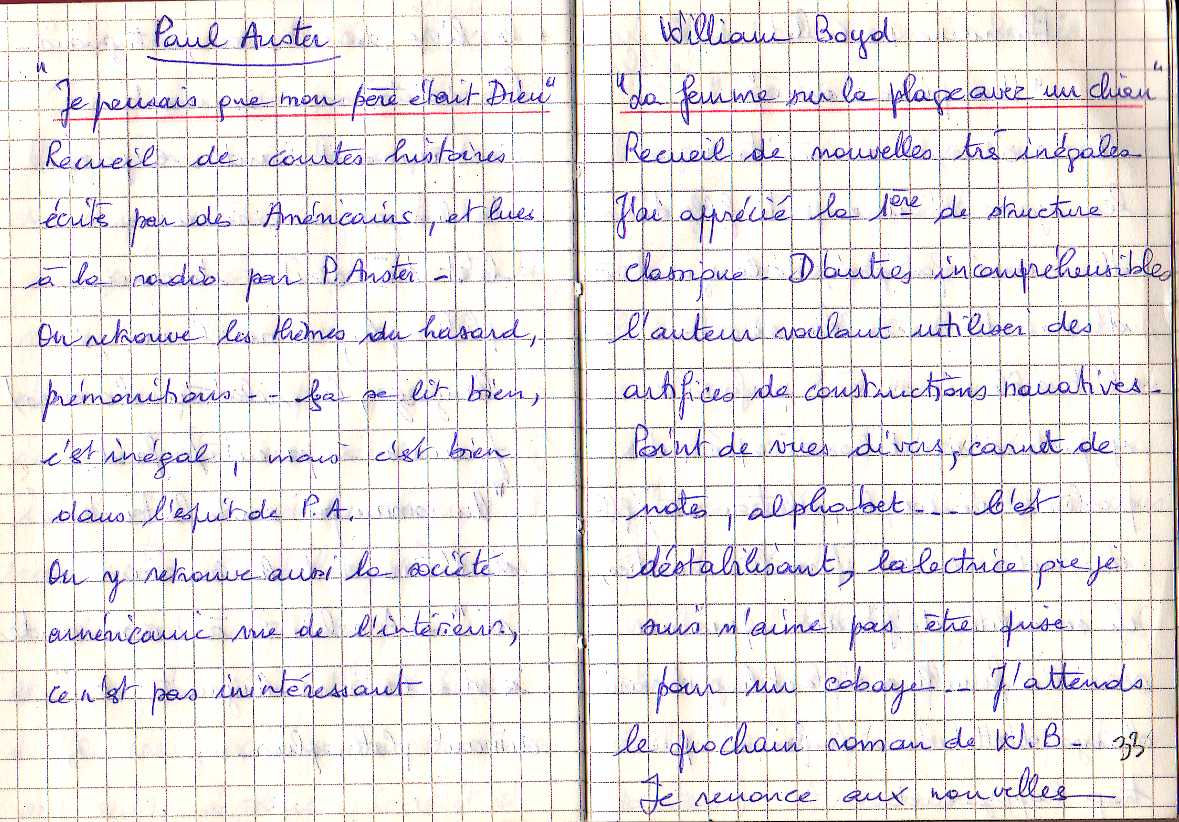 Paul Auster
"Je pensais que mon père était Dieu"
Recueil de courtes histoires
écrits par des Américains, et lues
à la radio par P. Auster -.
On retrouve les thèmes du hasard,
prémonitions - - ça se lit bien,
c'est inégal, mais c'est bien
dans l'esprit de P.A.
On y retrouve aussi la société
américaine vue de l'intérieur,
ce n'est pas inintéressant
William Boyd
"La femme sur la plage avec un chien"
Recueil de nouvelles très inégales
J'ai apprécié la 1ère de structure
classique - D'autres incompréhensibles
l'auteur voulant utiliser des
artifices de constructions narratives -
Point de vues divers, carnet de
notes, alphabet --- c'est
déstabilisant, la lectrice que je
suis n'aime pas être prise
pour un cobaye -- J'attends
le prochain roman de W.B - 33
Je renonce aux nouvelles